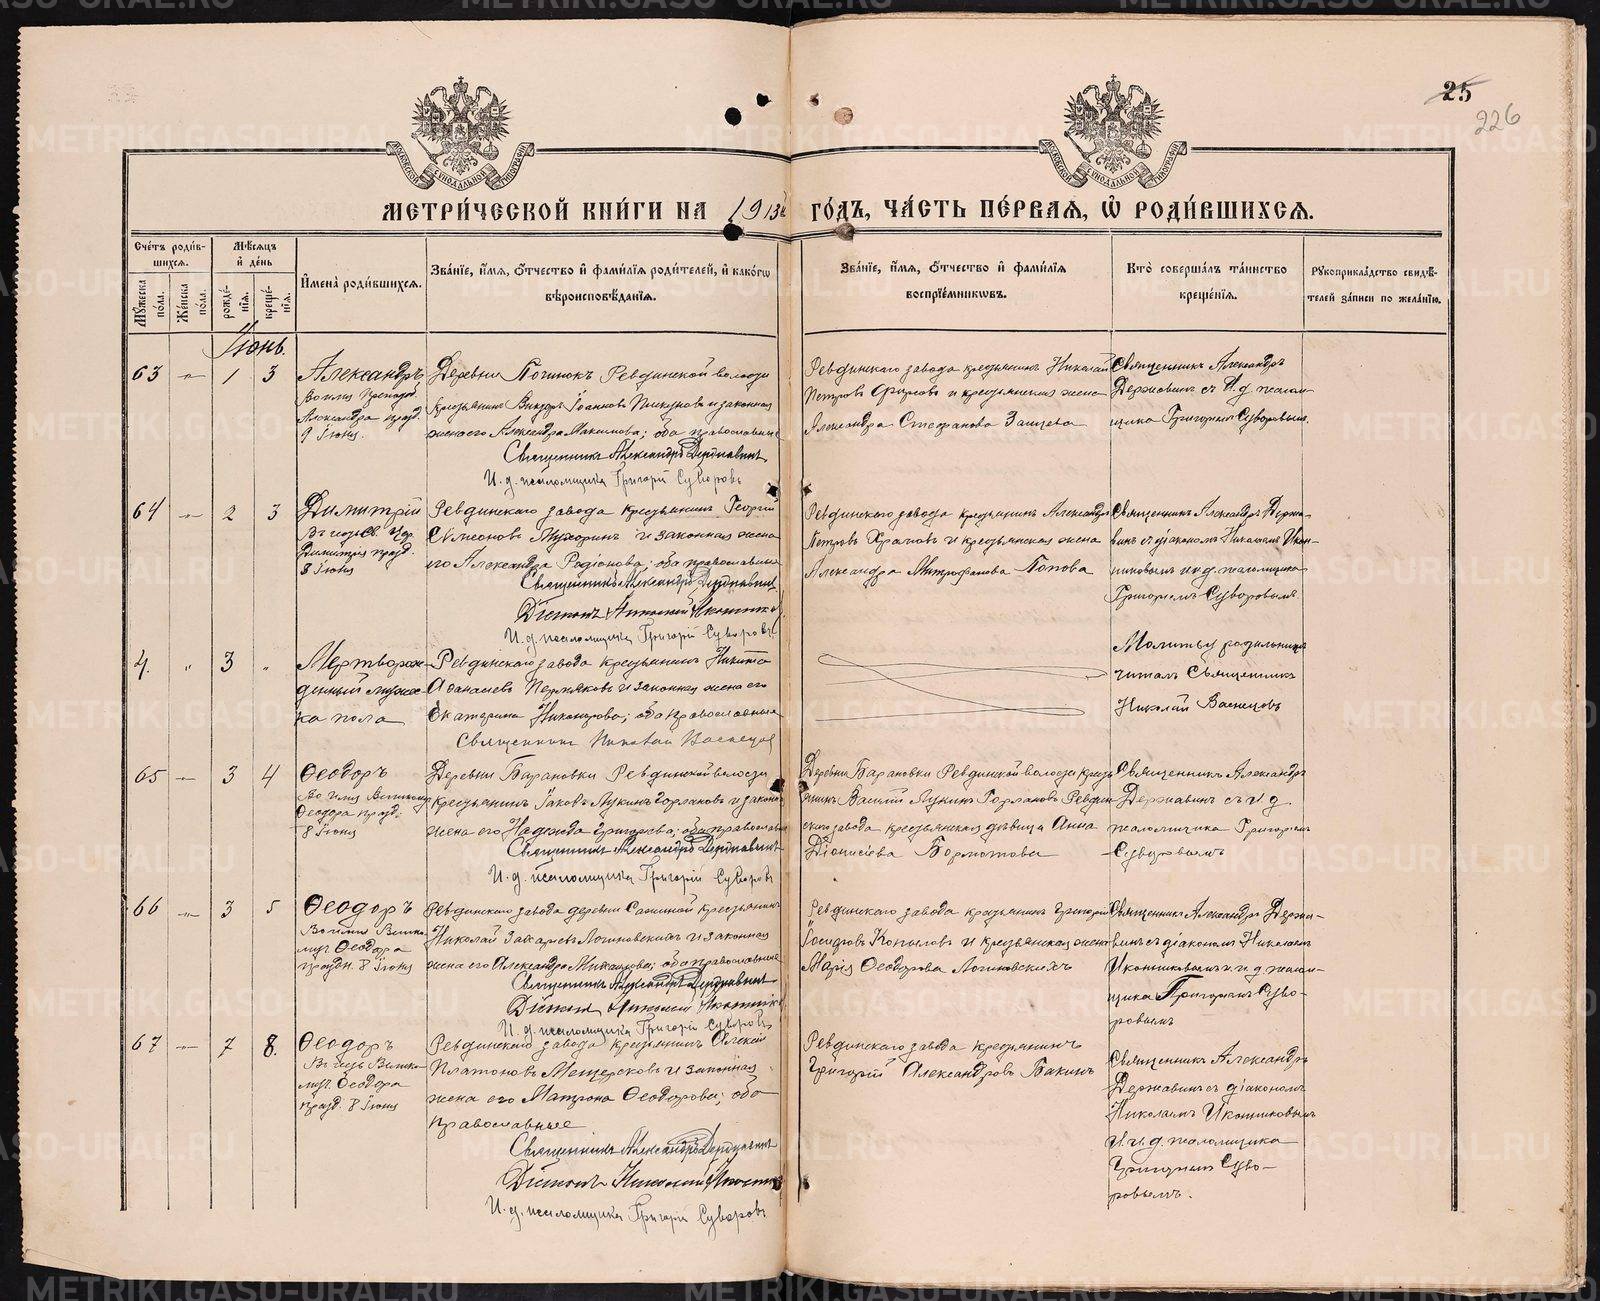 25
226
МОСКОВСКОЙ СѴНОДАЛЬНОЙ ТИПОГРАФІИ
МОСКОВСКОЙ СѴНОДАЛЬНОЙ ТИПОГРАФІИ
МЕТРИ́ЧЕСКОЙ КНИ́ГИ НА 1913й ГО́ДЪ, ЧА́СТЬ ПЕ́РВАЯ, Ѽ РОДИ́ВШИХСЯ.
Сче́тъ роди́в-
шихся.
Мꙋ́жеска по́ла.
Же́нска по́ла.
Мѣ́сяцъ
и҆ де́нь
рожде́-
нїя.
креще́-
нїя.
И҆мена̀ роди́вшихся.
Зва́нїе, и҆́мя, ѻ҆́тчество и҆ фами́лїя роди́телей, и҆ како́гѡ
вѣроисповѣ́данїя.
Зва́нїе, и҆́мя, ѻ҆́тчество и҆ фами́лїя
воспрїе́мникѡвъ.
Кто̀ соверша́лъ та́инство
креще́нїя.
Рꙋкоприкла́дство свидѣ́-
телей за́писи по жела́нїю.
Іюнь.
63 -"- 1 3
Александръ
Во имя Преподоб.
Александра празд.
9 Іюня.
Деревни Починокъ Ревдинской волости
крестьянинъ Викторъ Іоанновъ Пискуновъ и законная
жена его Александра Максимова; оба православные
Священникъ Александръ Державинъ
И. д. псаломщика Григорій Суворовъ
Ревдинскаго завода крестьянинъ Николай
Петровъ и крестьянская жена
Александра Стефанова Зайцева
Священникъ Александръ
Державинъ съ И. д. псалом-
щика Григоріемъ Суворовымъ.
64 -"- 2 3
Димитрій
Въ честь Св. Цар.
Димитрія празд.
3 Іюня
Ревдинскаго завода крестьянинъ Георгій
Симеоновъ Мухоринъ и законная жена
его Александра Родіонова; оба православные
Священникъ Александръ Державинъ
Діаконъ Николай Иконниковъ
И. д. псаломщика Григорій Суворовъ
Ревдинскаго завода крестьянинъ Александръ
Петровъ Храмовъ и крестьянская жена
Александра Митрофанова Попова
Священникъ Александръ Держа-
винъ съ діакономъ Николаемъ Икон-
никовымъ и и. д. псаломщика
Григоріемъ Суворовымъ.
4. " 3 "
Мертворож-
денный муже-
ска пола
Ревдинскаго завода крестьянинъ Никита
Аѳанасьевъ Пермяковъ и законная жена его
Екатерина Никанорова; оба православные
Священникъ Николай Васнецовъ
Молитву родильницѣ
читалъ Священникъ
Николай Васнецовъ
65 -"- 3 4
Ѳеодоръ
Во имя Великом.
Ѳеодора празд.
8 Іюня
Деревни Барановки Ревдинской волости
крестьянинъ Іаковъ Лукинъ Горлановъ и законная
жена его Надежда Григорьева; оба православные
Священникъ Александръ Державинъ
И. д. псаломщика Григорій Суворовъ
Деревни Барановки Ревдинской волости кресть-
янинъ Василій Лукинъ Горлановъ Ревдин-
скаго завода крестьянская дѣвица Анна
Діонисіева Бормотова
Священникъ Александръ
Державинъ съ и. д.
псаломщика Григоріемъ
Суворовымъ
66 -"- 3 5
Ѳеодоръ
Во имя Велико-
муч. Ѳеодора
праздн. 8 Іюня
Ревдинскаго завода деревни крестьянинъ
Николай Захаріевъ Логиновскихъ и законная
жена его Александра Михайлова; оба православные
Священникъ Александръ Державинъ
Діаконъ Николай Иконниковъ
И. д. псаломщика Григорій Суворовъ
Ревдинскаго завода крестьянинъ Григорій
Іосифовъ Копыловъ и крестьянская жена
Марія Ѳеодорова Логиновскихъ
Священникъ Александръ Держа-
винъ съ діакономъ Николаемъ
Иконниковымъ и и. д. псалом-
щика Григоріемъ Суво-
ровымъ
67 -"- 7 8.
Ѳеодоръ
Въ честь Велико-
муч. Ѳеодора
празд. 8 Іюня
Ревдинскаго завода крестьянинъ Алексій
Платоновъ Мещерсковъ и законная
жена его Матрона Ѳеодорова; оба
православные
Священникъ Александръ Державинъ
Діаконъ Николай Иконниковъ
И. д. псаломщика Григорій Суворовъ
Ревдинскаго завода крестьянинъ
Григорій Александровъ Бакинъ
Священникъ Александръ
Державинъ съ діакономъ
Николаемъ Иконниковымъ
и. и. д. псаломщика
Григоріемъ Суво-
ровымъ.
METRIKI.GASO-URAL.RU